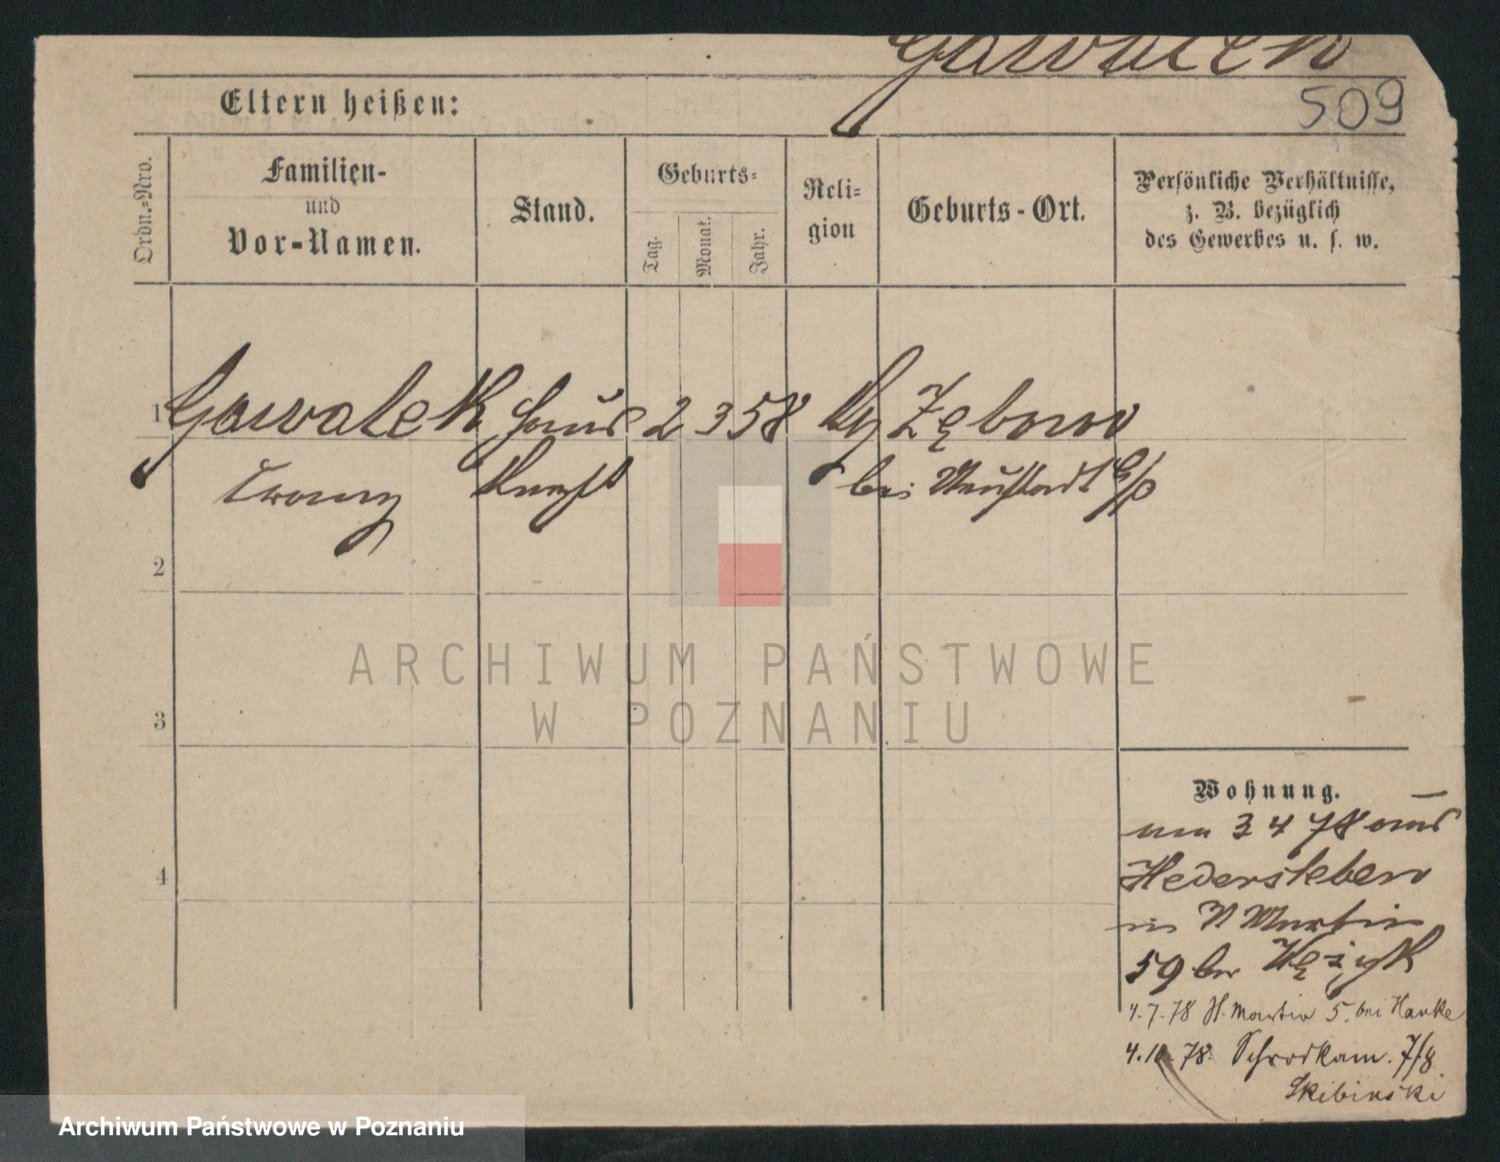 Gawalek
509
Eltern heißen:
Ordn.-Nro.
Familien-
und
Vor-Namen.
Stand.
Geburts-
Tag.
Monat.
Jahr.
Reli-
gion
Geburts-Ort.
Persönliche Verhältnisse,
z. B. bezüglich
des Gewerbes u. s. w.
1 Gawalek Haus 2 3 58 Zęborow
Franz Knecht bei Neustadt b/p
2
3
4
ARCHIWUM PAŃSTWOWE
W POZNANIU
Wohnung.
3 4 78 aus
Hedersleben
in St Martin
59 bei Wężyk
4.7.78 St. Martin 5. bei Hanke
4.10.78. Schrodkam. 7/8
Skibinski
Archiwum Państwowe w Poznaniu